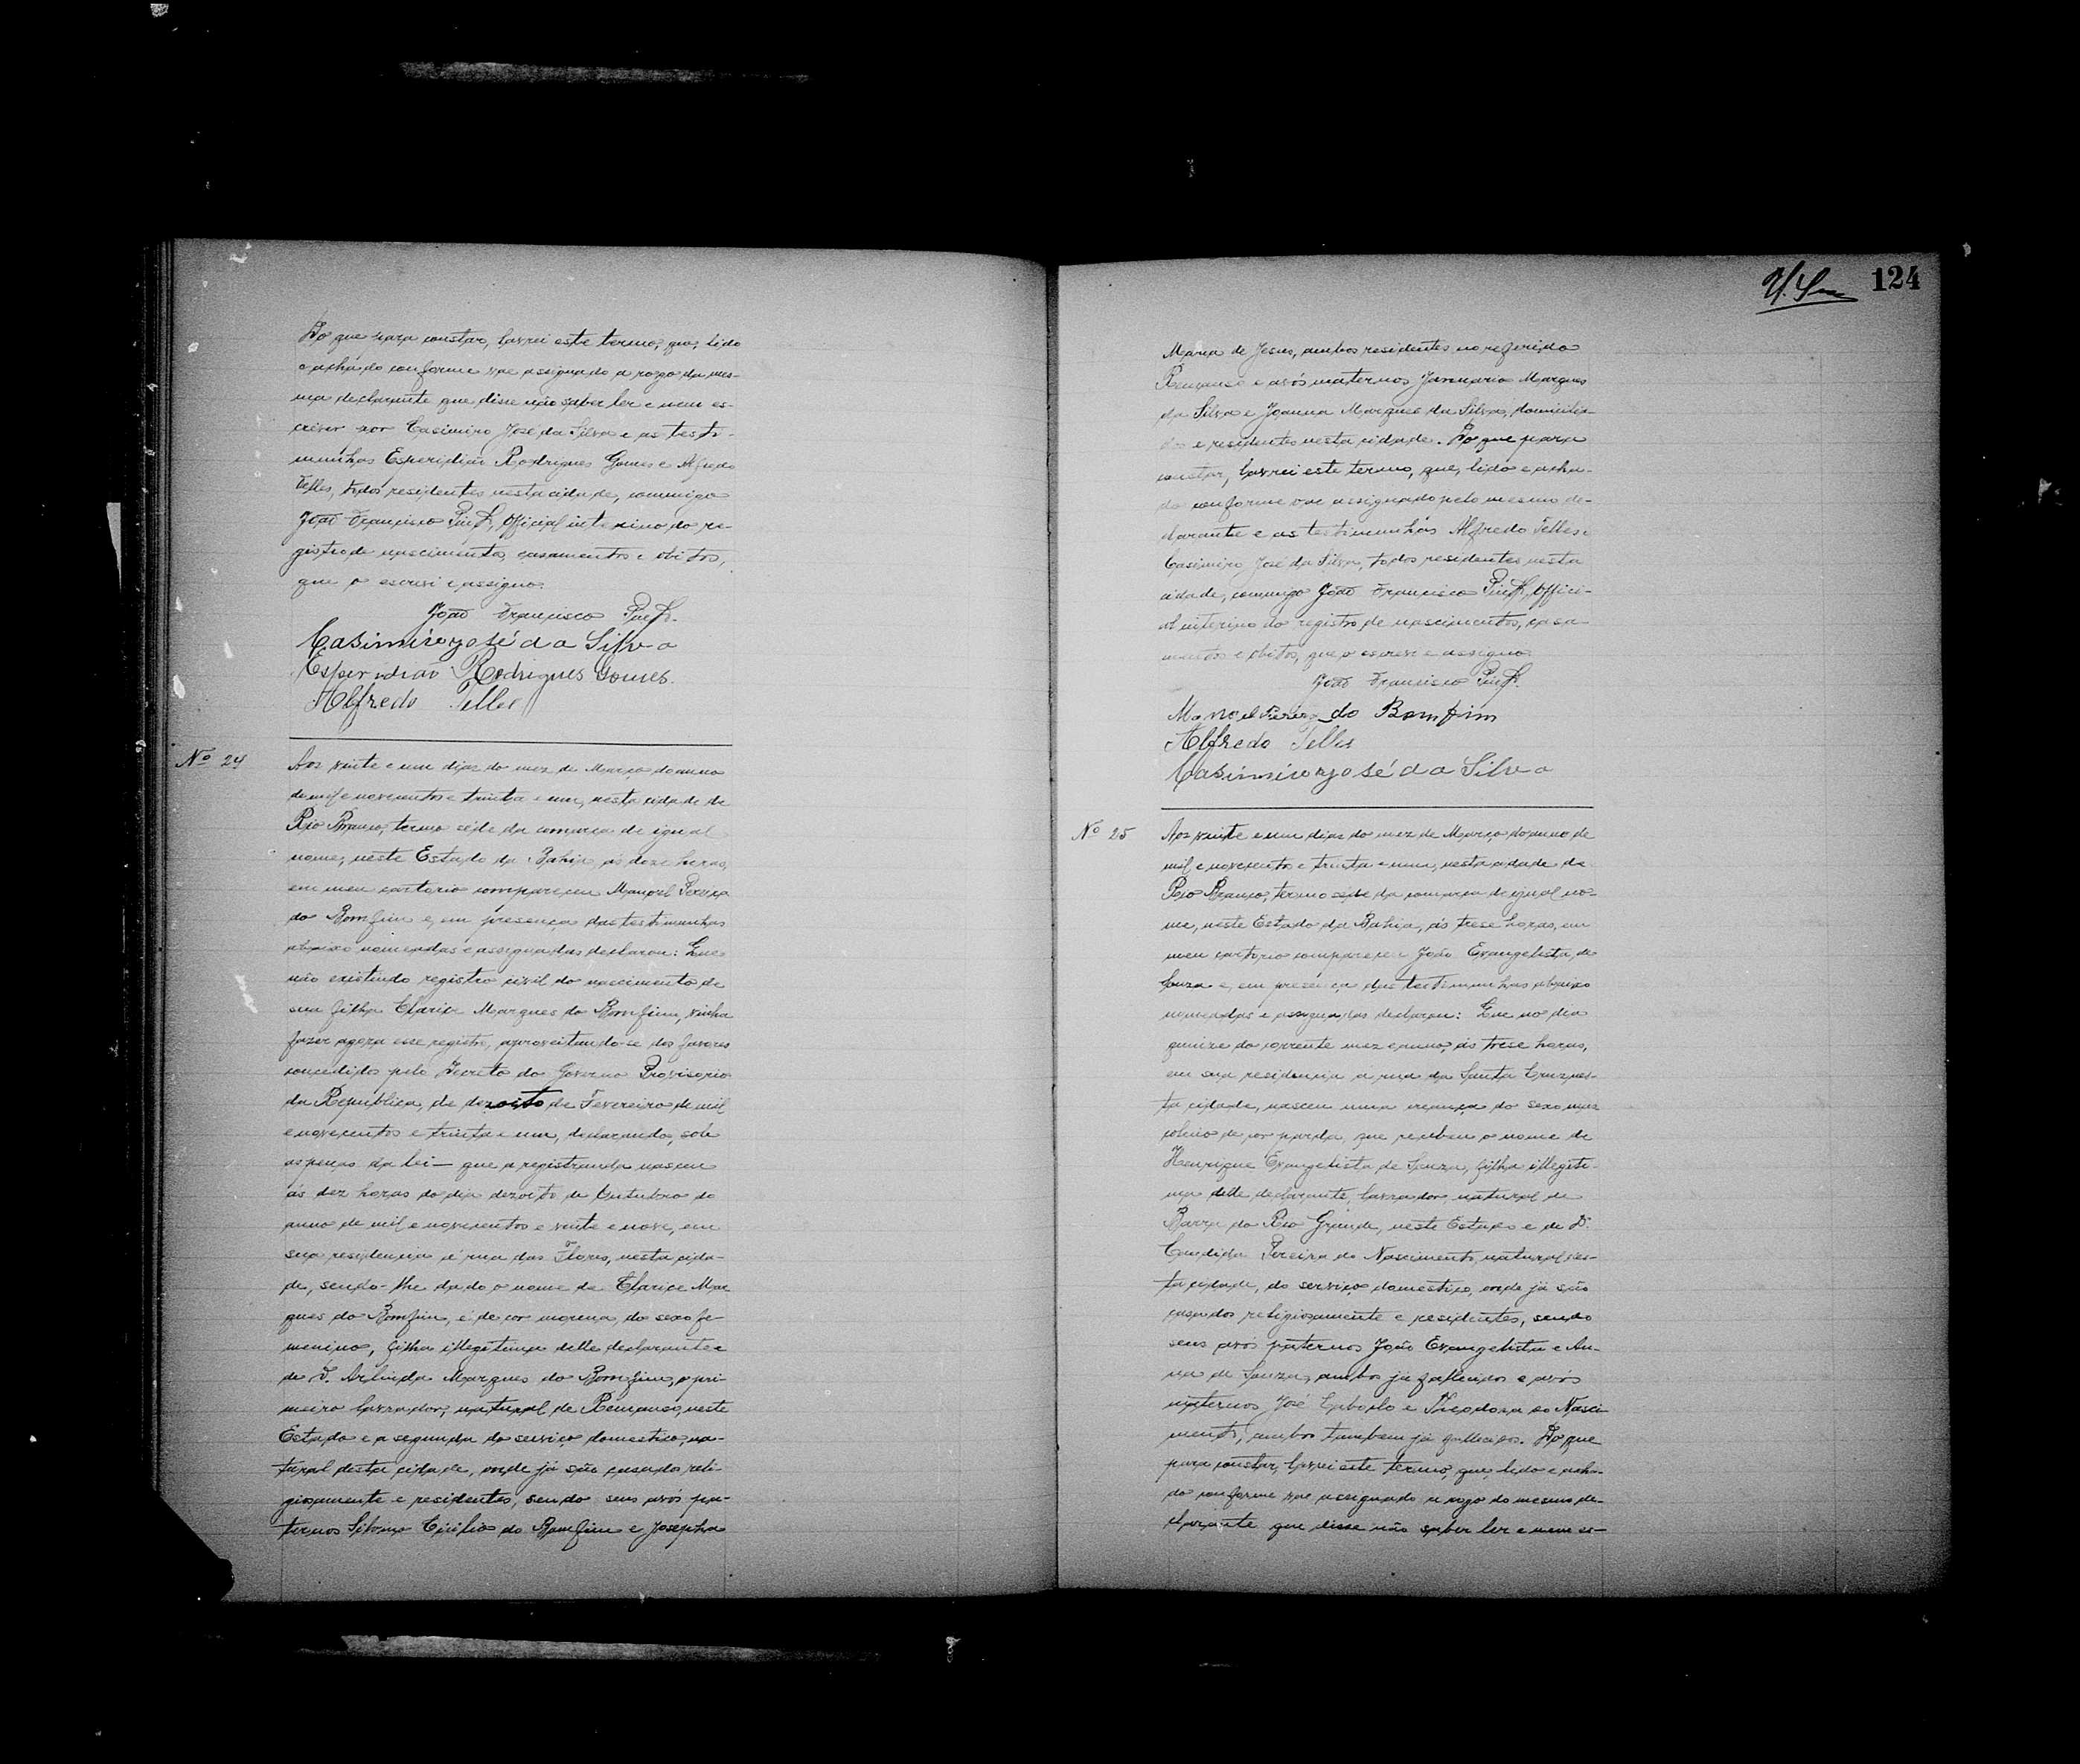 Do que para constar, lavrei este termo, que, lido
e achado conforme vae assignado a rogo da mes-
ma declarante que disse não saber ler e nem es-
crever por Casimiro José da Silva e as teste-
munhas Esperidião Rodrigues Gomes e Alfredo
Telles, todos residentes nesta cidade, commigo
João Francisco, Official interino do re-
gistro de nascimentos, casamentos e obitos,
que o escrevi e assigno.
João Francisco
Casimiro José da Silva
Esperidião Rodrigues Gomes.
Alfredo Telles
Nº 24
Aos vinte e um dias do mez de Março do anno
de mil e novecentos e trinta e um, nesta cidade de
Rio Branco, termo séde da comarca de igual
nome, neste Estado da Bahia, ás doze horas,
em meu cartorio compareceu Manoel Pereira
do Bomfim e, em presença das testimunhas
abaixo nomeadas e assignadas declarou: Que
não existindo registro civil do nascimento de
sua filha Clarice Marques do Bomfim, vinha
fazer agora esse registro, aproveitando-se dos favores
concedidos pelo Decreto do Governo Provisorio
da Republica, de dezoito de Fevereiro de mil
e novecentos e trinta e um, declarando, sob
as penas da lei — que a registranda nasceu
ás dez horas do dia dezoito de Outubro do
anno de mil e novecentos e vinte e nove, em
sua residencia á rua das Flores, nesta cida-
de, sendo-lhe dado o nome de Clarice Mar
ques do Bomfim, é de cor morena, do sexo fe-
menino, filha illegitima delle declarante e
de D. Arlinda Marques do Bomfim, o pri-
meiro lavrador, natural de Remanso, neste
Estado e a segunda do serviço domestico, na-
tural desta cidade, onde já são casados reli-
giosamente e residentes, sendo seus avós pa-
ternos Silvino Cicilio do Bomfim e Josepha
124
Maria de Jesus, ambos residentes no referido
Remanso e avós maternos Januario Marques
da Silva e Joanna Marques da Silva, domicilia-
dos e residentes nesta cidade. Do que para
constar, lavrei este termo, que, lido e acha-
do conforme vae assignado pelo mesmo de-
clarante e as testimunhas Alfredo Telles e
Casimiro José da Silva, todos residentes nesta
cidade, commigo João Francisco, Offici-
al interino do registro de nascimentos, casa-
mentos e obitos, que o escrevi e assigno.
João Francisco
Manoel Pereira do Bomfim
Alfredo Telles
Casimiro José da Silva
Nº 25
Aos vinte e um dias do mez de Março do anno de
mil e novecentos e trinta e um, nesta cidade de
Rio Branco, termo séde da comarca de igual no-
me, neste Estado da Bahia, ás trese horas, em
meu cartorio compareceu João Evangelista de
Souza e, em presença das testimunhas abaixo
nomeadas e assignadas declarou: Que no dia
quinze do corrente mez e anno, ás trese horas,
em sua residencia a rua da Santa Cruz, nes-
ta cidade, nasceu uma creança do sexo mas
colino de cor parda, que recebeu o nome de
Henrique Evangelista de Souza, filho illegiti-
mo delle declarante, lavrador, natural de
Barra do Rio Grande, neste Estado e de D.
Candida Pereira do Nascimento, natural des-
ta cidade, do serviço domestico, onde já são
casados religiosamente e residentes, sendo
seus avós paternos João Evangelista e An-
na de Souza, ambos já fallecidos e avós
maternos José e Theodora do Nasci
mento, ambos tambem já fallecidos. Do que
para constar, lavrei este termo, que, lido e acha-
do conforme vae assignado a rogo do mesmo de-
clarante que disse não saber ler e nem es-